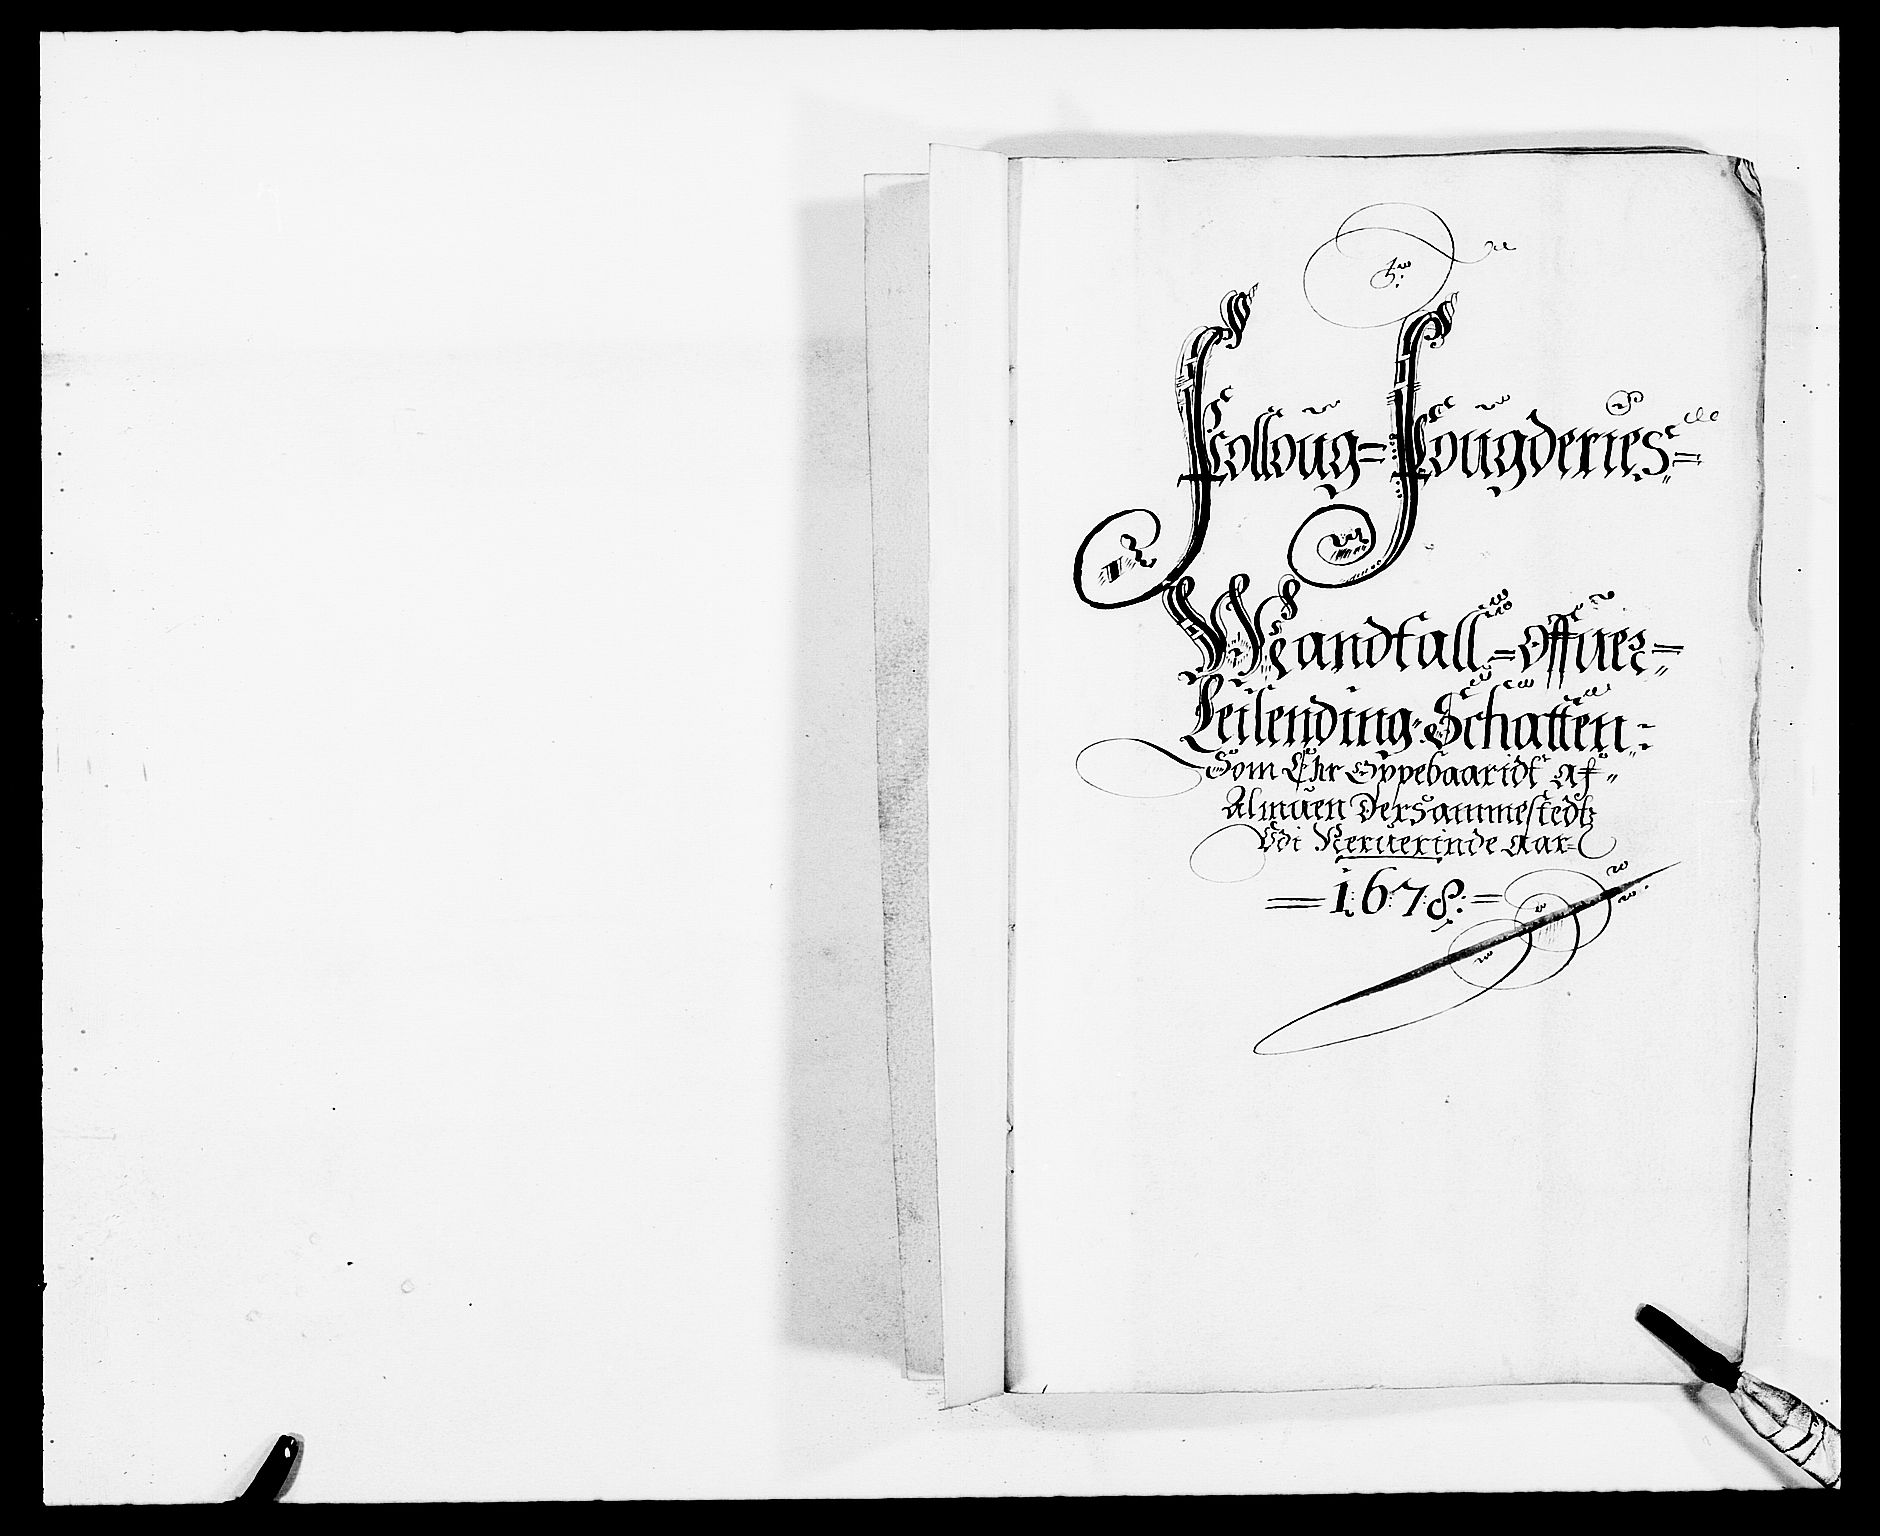 Folloug= Fougderies=
Mandtall =offuer=
Leilending= Schatten=
Som Ehr Oppebaaridt af
Almuen Dersammestedtz
Vdi Neruerinde Aar
=1678:=